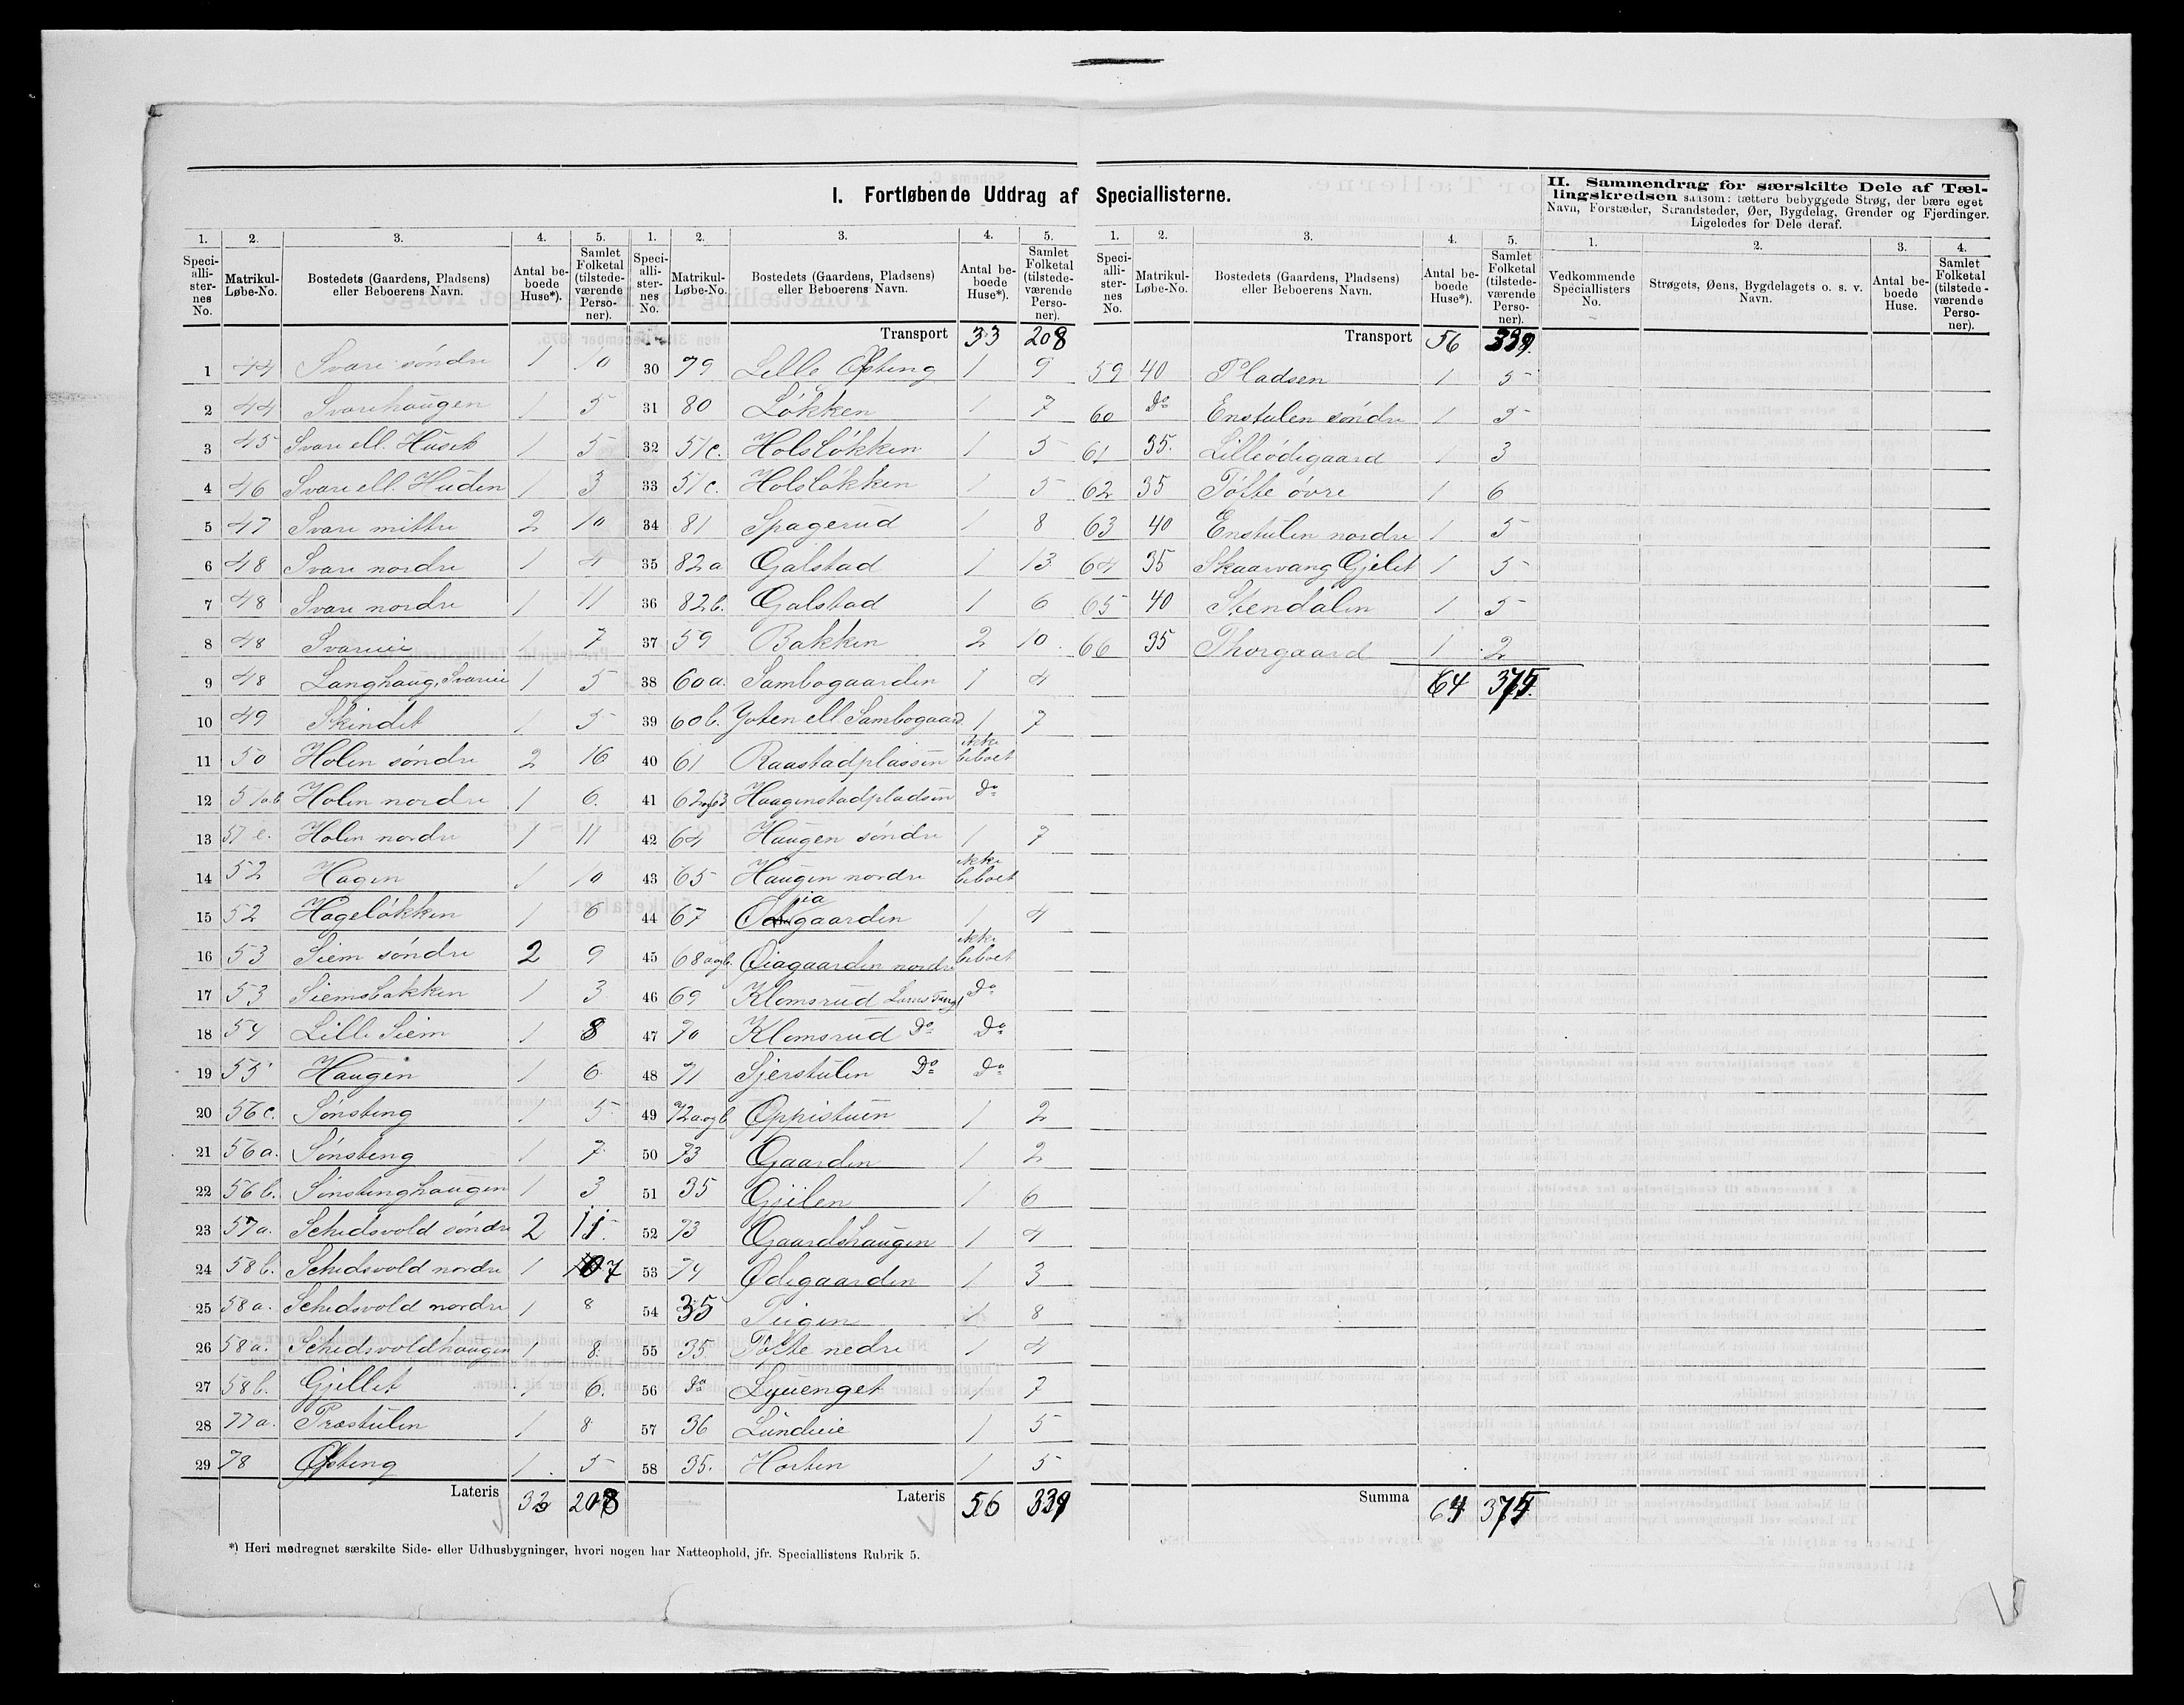 I. Fortløbende Uddrag af Speciallisterne.
1. 2. 3. 4. 5.
Speciallisternes No. Matrikul-Løbe-No. Bostedets (Gaardens, Pladsens) eller Beboerens Navn. Antal beboede Huse*). Samlet Folketal (tilstedeværende Personer).
1 44 Svare søndre 1 10
2 44 Svarehaugen 1 5
3 45 Svare ell. Huset 1 5
4 46 Svare ell. Huden 1 3
5 47 Svare mittre 2 10
6 48 Svare nordre 1 4
7 48 Svare nordre 1 11
8 48 Svareie 1 7
9 48 Langhaug, Svareie 1 5
10 49 Skindet 1 5
11 50 Holen søndre 2 16
12 51a.b. Holen nordre 1 6.
13 51 e. Holen nordre 1 11
14 52 Hagen 1 10
15 52 Hageløkken 1 6
16 53 Siem søndre 2 9
17 53 Siemsbakken 1 3
18 54 Lille Siem 1 8
19 55 Haugen 1 6
20 56c. Sønsteng 1 5
21 56a. Sønsteng 1 7
22 56b. Sønstenghaugen 1 3
23 57a. Schedsvold søndre 2 11
24 58b. Schedsvold nordre 1 7
25 58a. Schedsvold nordre 1 8
26 58a. Schedsvoldhaugen 1 8.
27 58b. Gjellet 1 6.
28 77a. Præstulen 1 8
29 78 Øfsteng 1 5
Lateris 33 208
1. 2. 3. 4. 5.
Speciallisternes No. Matrikul-Løbe-No. Bostedets (Gaardens, Pladsens) eller Beboerens Navn. Antal beboede Huse*). Samlet Folketal (tilstedeværende Personer).
Transport 33 208
30 79 Lille Øfsteng 1 9
31 80 Løkken 1 7
32 51c. Holsløkken 1 5
33 51c. Holsløkken 1 5
34 81 Spagerud 1 8
35 82a Galstad 1 13
36 82b. Galstad 1 6
37 59 Bakken 2 10
38 60a. Sambogaarden 1 4
39 60b. Yoten ell Sambogaard. 1 7
40 61 Raastadplassen Ikke beboet
41 62og63 Haagenstadpladsen Do
42 64 Haugen søndre 1 7
43 65 Haugen nordre Ikke beboet
44 67 Øiagaarden 1 4
45 68aogb. Øiagaarden nordre Ikke beboet
46 69 Klomsrud Do
47 70 Klomsrud Do Do
48 71 Sjerstulen Do Do
49 72aogb Oppistuen 1 2
50 73 Gaarden 1 2
51 35 Gjeilen 1 6
52 73 Gaardshaugen 1 4
53 74 Ødegaarden 1 3
54 35 Teigen 1 8
55 35 Tofte nedre 1 4
56 Do Lyuenget 1 7
57 36 Lundeie 1 5
58 35. Horten 1 5
Lateris 56 339
1. 2. 3. 4. 5.
Speciallisternes No. Matrikul-Løbe-No. Bostedets (Gaardens, Pladsens) eller Beboerens Navn. Antal beboede Huse*). Samlet Folketal (tilstedeværende Personer).
Transport 56 339.
59 40 Pladsen 1 5
60 Do Enstulen søndre 1 5
61 35. Lilleødegaard 1 3
62 35 Tofte øvre 1 6
63 40 Enstulen nordre 1 5
64 35 Skaarvang Gjelet 1 5
65 40 Stendalen 1 5
66 35 Thorgaard 1 2
64 375.
Summa 64 375
II. Sammendrag for særskilte Dele af Tællingskredsen saasom: tættere bebyggede Strøg, der bære eget
Navn, Forstæder, Strandsteder, Øer, Bygdelag, Grender og Fjerdinger.
Ligeledes for Dele deraf.
1. 2. 3. 4.
Vedkommende Speciallisters No. Strøgets, Øens, Bygdelagets o. s. v. Navn. Antal beboede Huse. Samlet Folketal (tilstedeværende Personer).
*) Heri medregnet særskilte Side- eller Udhusbygninger, hvori nogen har Natteophold, jfr. Speciallistens Rubrik 5.